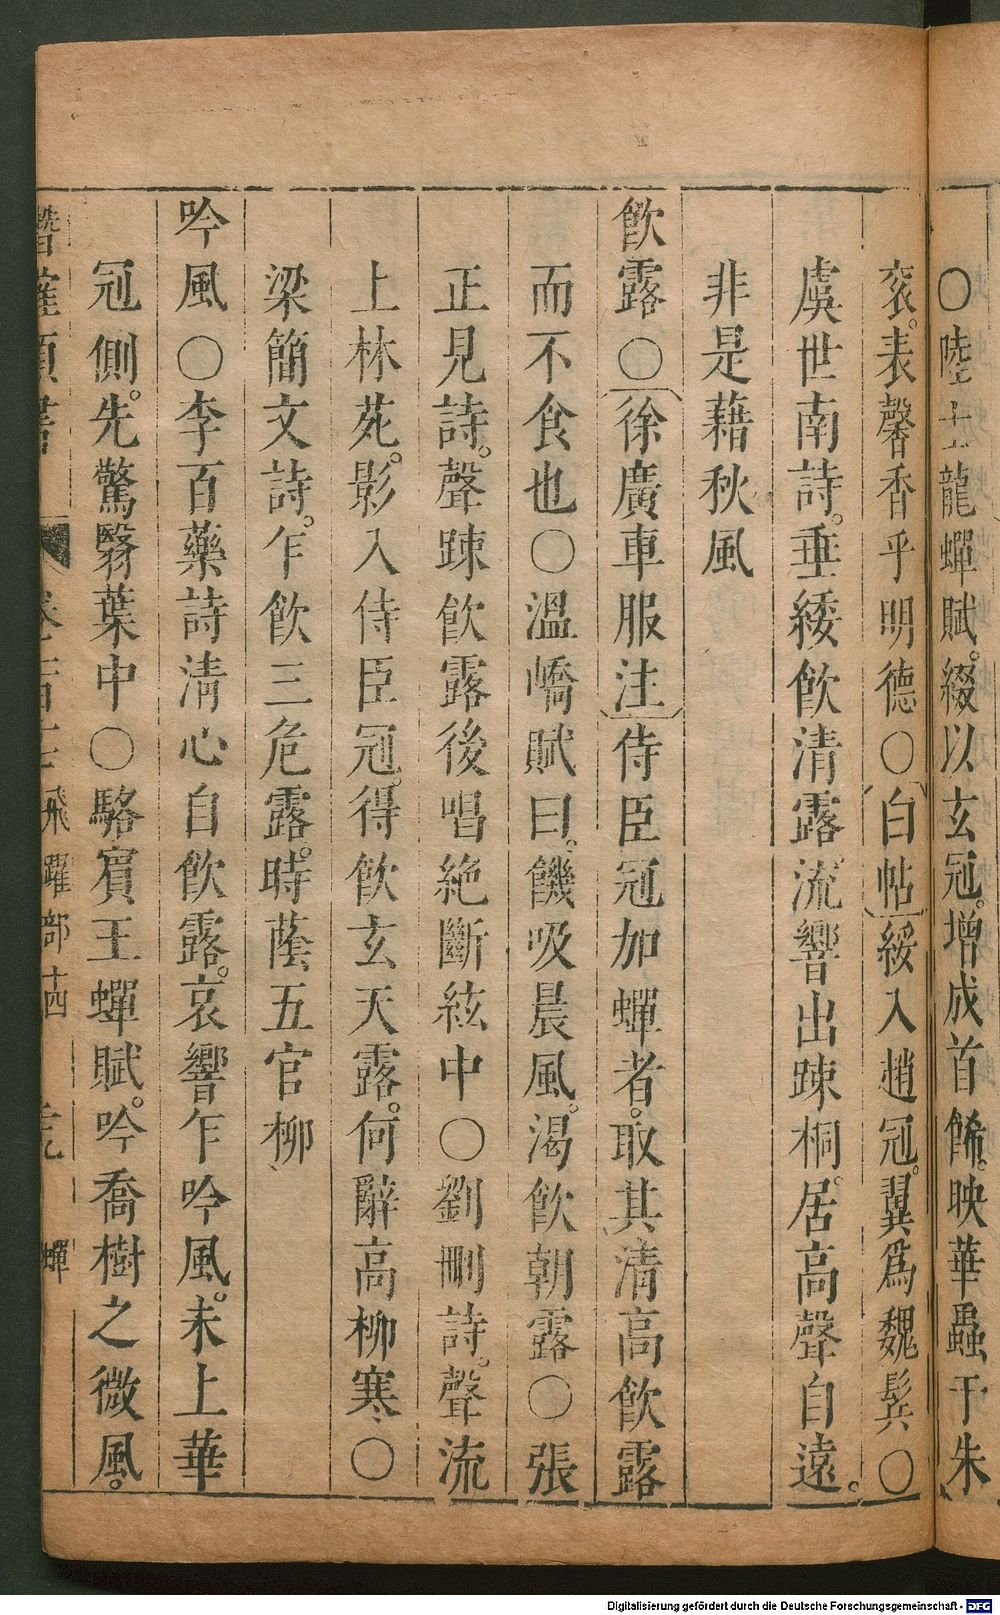 ○陸士龍蟬賦。綴以玄冠。增成首餙。映華蟲于朱
衮。表馨香乎明德○白帖綏入趙冠。翼爲魏鬂○
虞世南詩。垂緌飲清露。流響出踈桐。居高聲自遠。
非是藉秋風
飲露○徐廣車服注侍臣冠加蟬者。取其清高飲露
而不食也○溫嶠賦曰。饑吸晨風。渴飲朝露○張
正見詩。聲踈飲露後唱絶斷絃中○劉刪詩。聲流
上林苑。影入侍臣冠。得飲玄天露。何辭高柳寒○
梁簡文詩。乍飲三危露。時蔭五官柳
吟風○李百藥詩清心自飲露。哀響乍吟風。未上華
冠側。先驚翳葉中○駱賓王蟬賦。吟喬樹之微風。
飛躍部十四 蟬
Digitalisierung gefördert durch die Deutsche Forschungsgemeinschaft - DFG